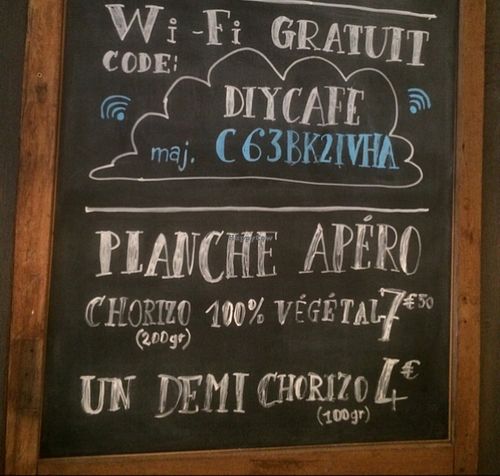 Wi-Fi GRATUIT
CODE:
DIYCAFE
maj. C63BK2IVHA
PLANCHE APÉRO
CHORIZO 100% VÉGÉTAL 7€50
(200gr)
UN DEMI CHORIZO 4€
(100gr)